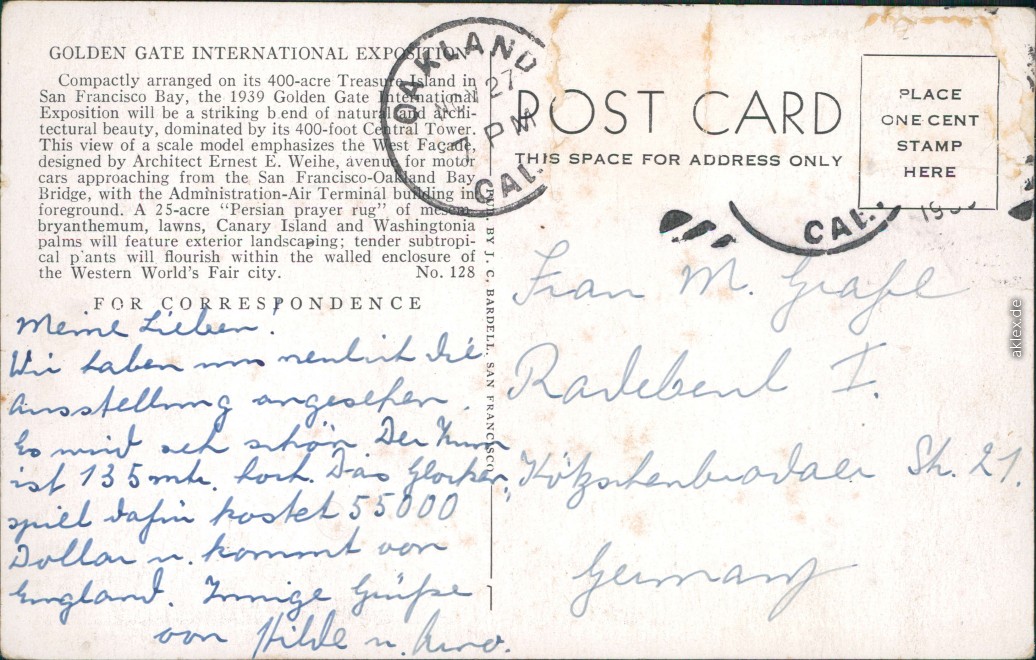 GOLDEN GATE INTERNATIONAL EXPOSITION
Compactly arranged on its 400-acre Treasure Island in
San Francisco Bay, the 1939 Golden Gate International
Exposition will be a striking b end of natural and archi-
tectural beauty, dominated by its 400-foot Central Tower.
This view of a scale model emphasizes the West Façade,
designed by Architect Ernest E. Weihe, avenue for motor
cars approaching from the San Francisco-Oakland Bay
Bridge, with the Administration-Air Terminal building in
foreground. A 25-acre “Persian prayer rug” of mesem-
bryanthemum, lawns, Canary Island and Washingtonia
palms will feature exterior landscaping; tender subtropi-
cal p'ants will flourish within the walled enclosure of
the Western World's Fair city. No. 128
FOR CORRESPONDENCE
Meine Lieben!
Wir haben uns neulich die
Ausstellung angesehen.
Es wird seh schön Der Turm
ist 135 mtr. hoch. Das Glocken
spiel dafür kostet 55000
Dollar u. kommt von
England. Innige Grüße
von Hilde u.
PUB. BY J. C. BARDELL. SAN FRANCISCO
OAKLAND
27
7 PM
CAL.
POST CARD
THIS SPACE FOR ADDRESS ONLY
PLACE
ONE CENT
STAMP
HERE
CAL.
Frau M. Grafe
Radebeul I.
Kötzschenbrodaer Str. 21.
Germany
aklex.de